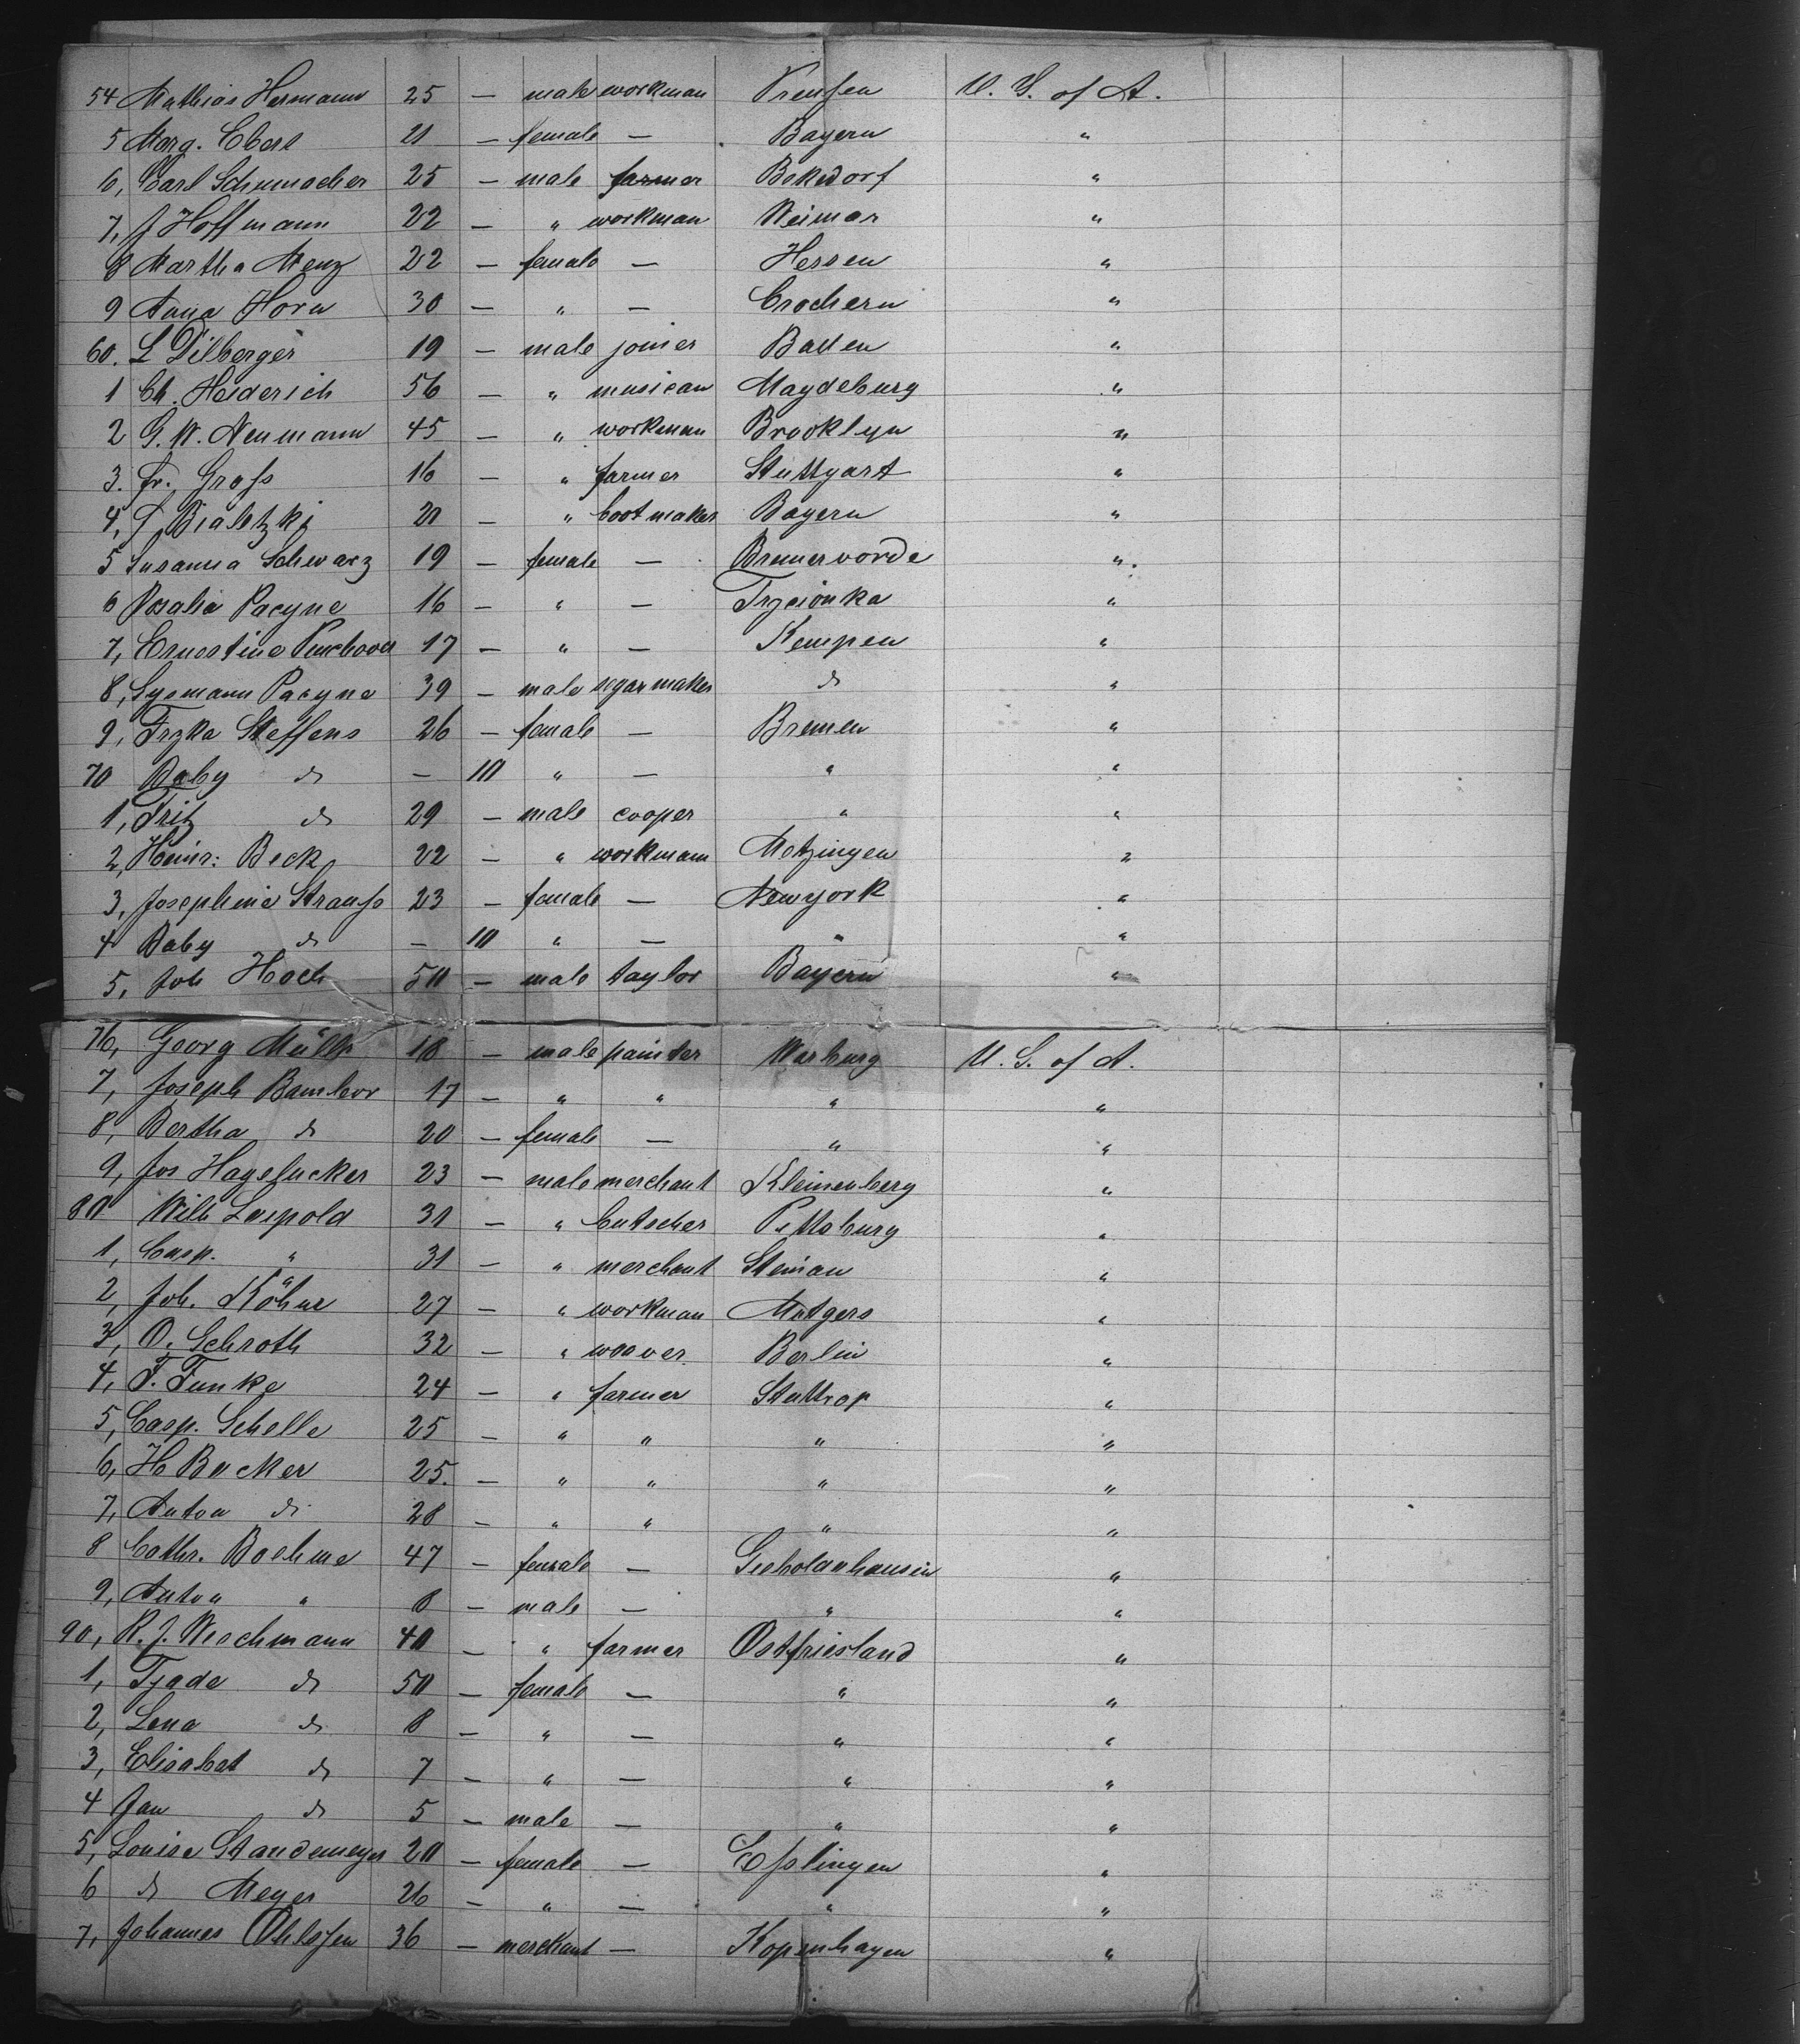 54 Mathias Hermann 25 — male workman Preußen U. S. of A.
5 Marg. Ebert 21 — female — Bayern "
6, Carl Schumacher 25 — male farmer Bokedorf "
7, J Hoffmann 22 — " workman Weimar "
8 Martha Menz 22 — female — Hessen "
9 Anna Horn 30 — " — Crochern "
60. L Dilberger 19 — male joiner Baden "
1 Ch. Heiderich 56 — " musican Magdeburg "
2 G. W. Neumann 45 — " workman Brooklyn "
3. Fr. Groß 16 — " farmer Stuttgart "
4, Bialetzki 20 — " bootmaker Bayern "
5 Susanna Schwarz 19 — female — Bremervorde "
6 Rosalia Pacyne 16 — " — Trzcionka "
7, Ernestine 17 — " — Kempen "
8, Sysmann Pacyne 39 — male segarmaker do "
9, Frzka Steffens 26 — female — Bremen "
70 Baby do — 10 " — " "
1, Fritz do 29 — male cooper " "
2, Heinr: Beck 22 — " workmam Metzingen "
3, Josephine Strauß 23 — female — Newyork "
4 Baby do — 10 " — " "
5, Joh Hoch 50 — male taylor Bayern "
76, Georg Müllr 18 — male painter Warburg U. S. of A.
7, Joseph Bamber 17 — " " " "
8, Bertha do 20 — female — " "
9, Jos Hagelucker 23 — male merchant Kleinenberg "
80 Wilh Leopold 31 — " butscher Pittsburg "
1, Casp. " 31 — " merchant Steinau "
2, Joh. Köhne 27 — " workman "
3, O. Schroth 32 — " weaver Berlin "
4, F. Funke 24 — " farmer Stuttrop "
5, Casp. Schelle 25 — " " " "
6, H Backer 25. — " " " "
7, Anton do 28 — " " " "
8 Cathr. Boehme 47 — female — "
9, Anton " 8 — male — " "
90, R. J. Weochmann 40 — " farmer Ostfriesland "
1, Tjade do 50 — female — " "
2, Lena do 8 — " — " "
3, Elisabet do 7 — " — " "
4 Jan do 5 — male — " "
5, Louise Standemeyer 20 — female — Eßlingen "
6 do Meyer 26 — " — " "
7, Johannes Ohlsßen 36 — merchant — Kopenhagen "